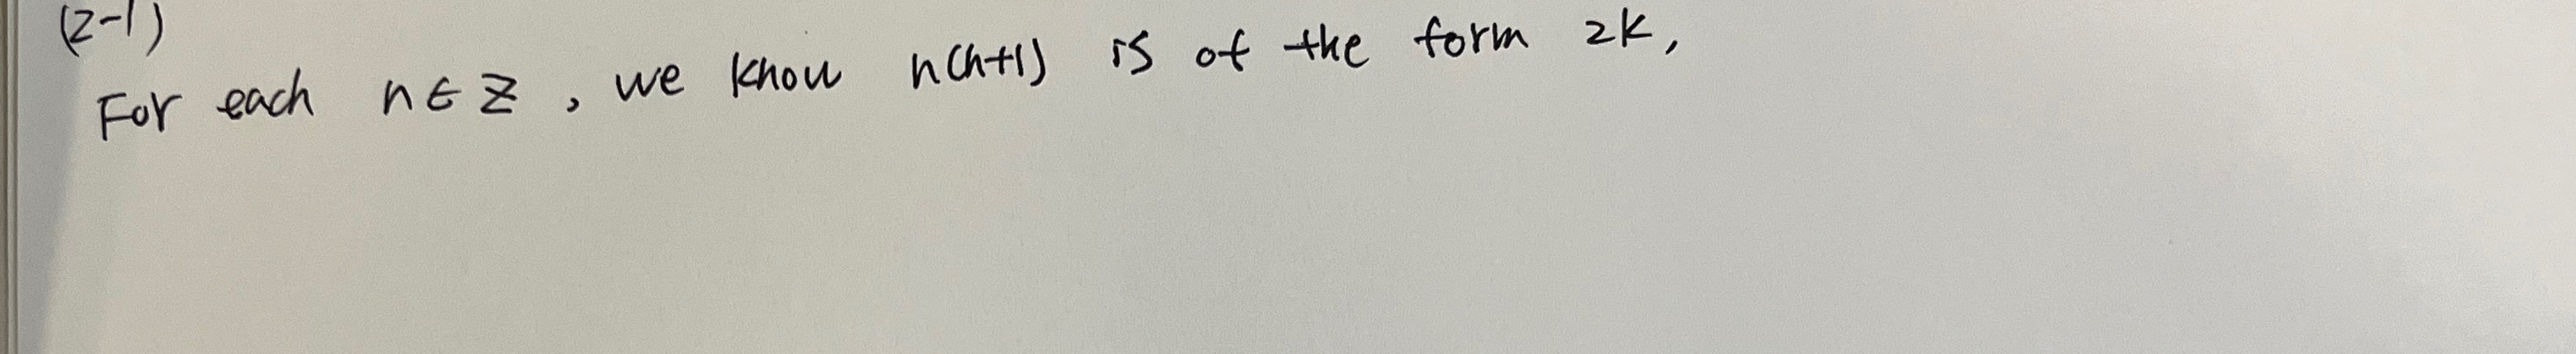 (2-1)
For each n ∈ Z, we know n(n+1) is of the form 2k,